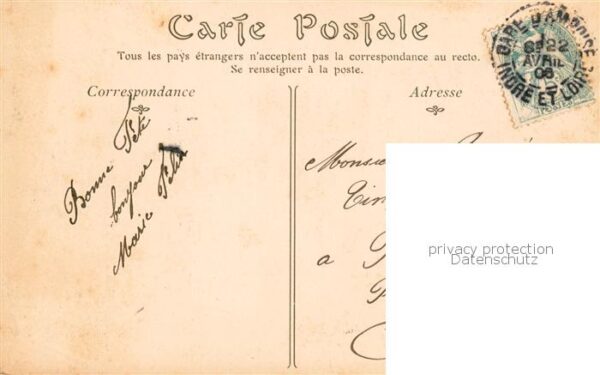 Carte Postale
Tous les pays étrangers n'acceptent pas la correspondance au recto.
Se renseigner à la poste.
Correspondance
Adresse
GARE D'AMBOISE
22
AVRIL
08
INDRE ET LOIRE
Bonne Fête
bonjour
Marie
Monsieur
a
privacy protection
Datenschutz